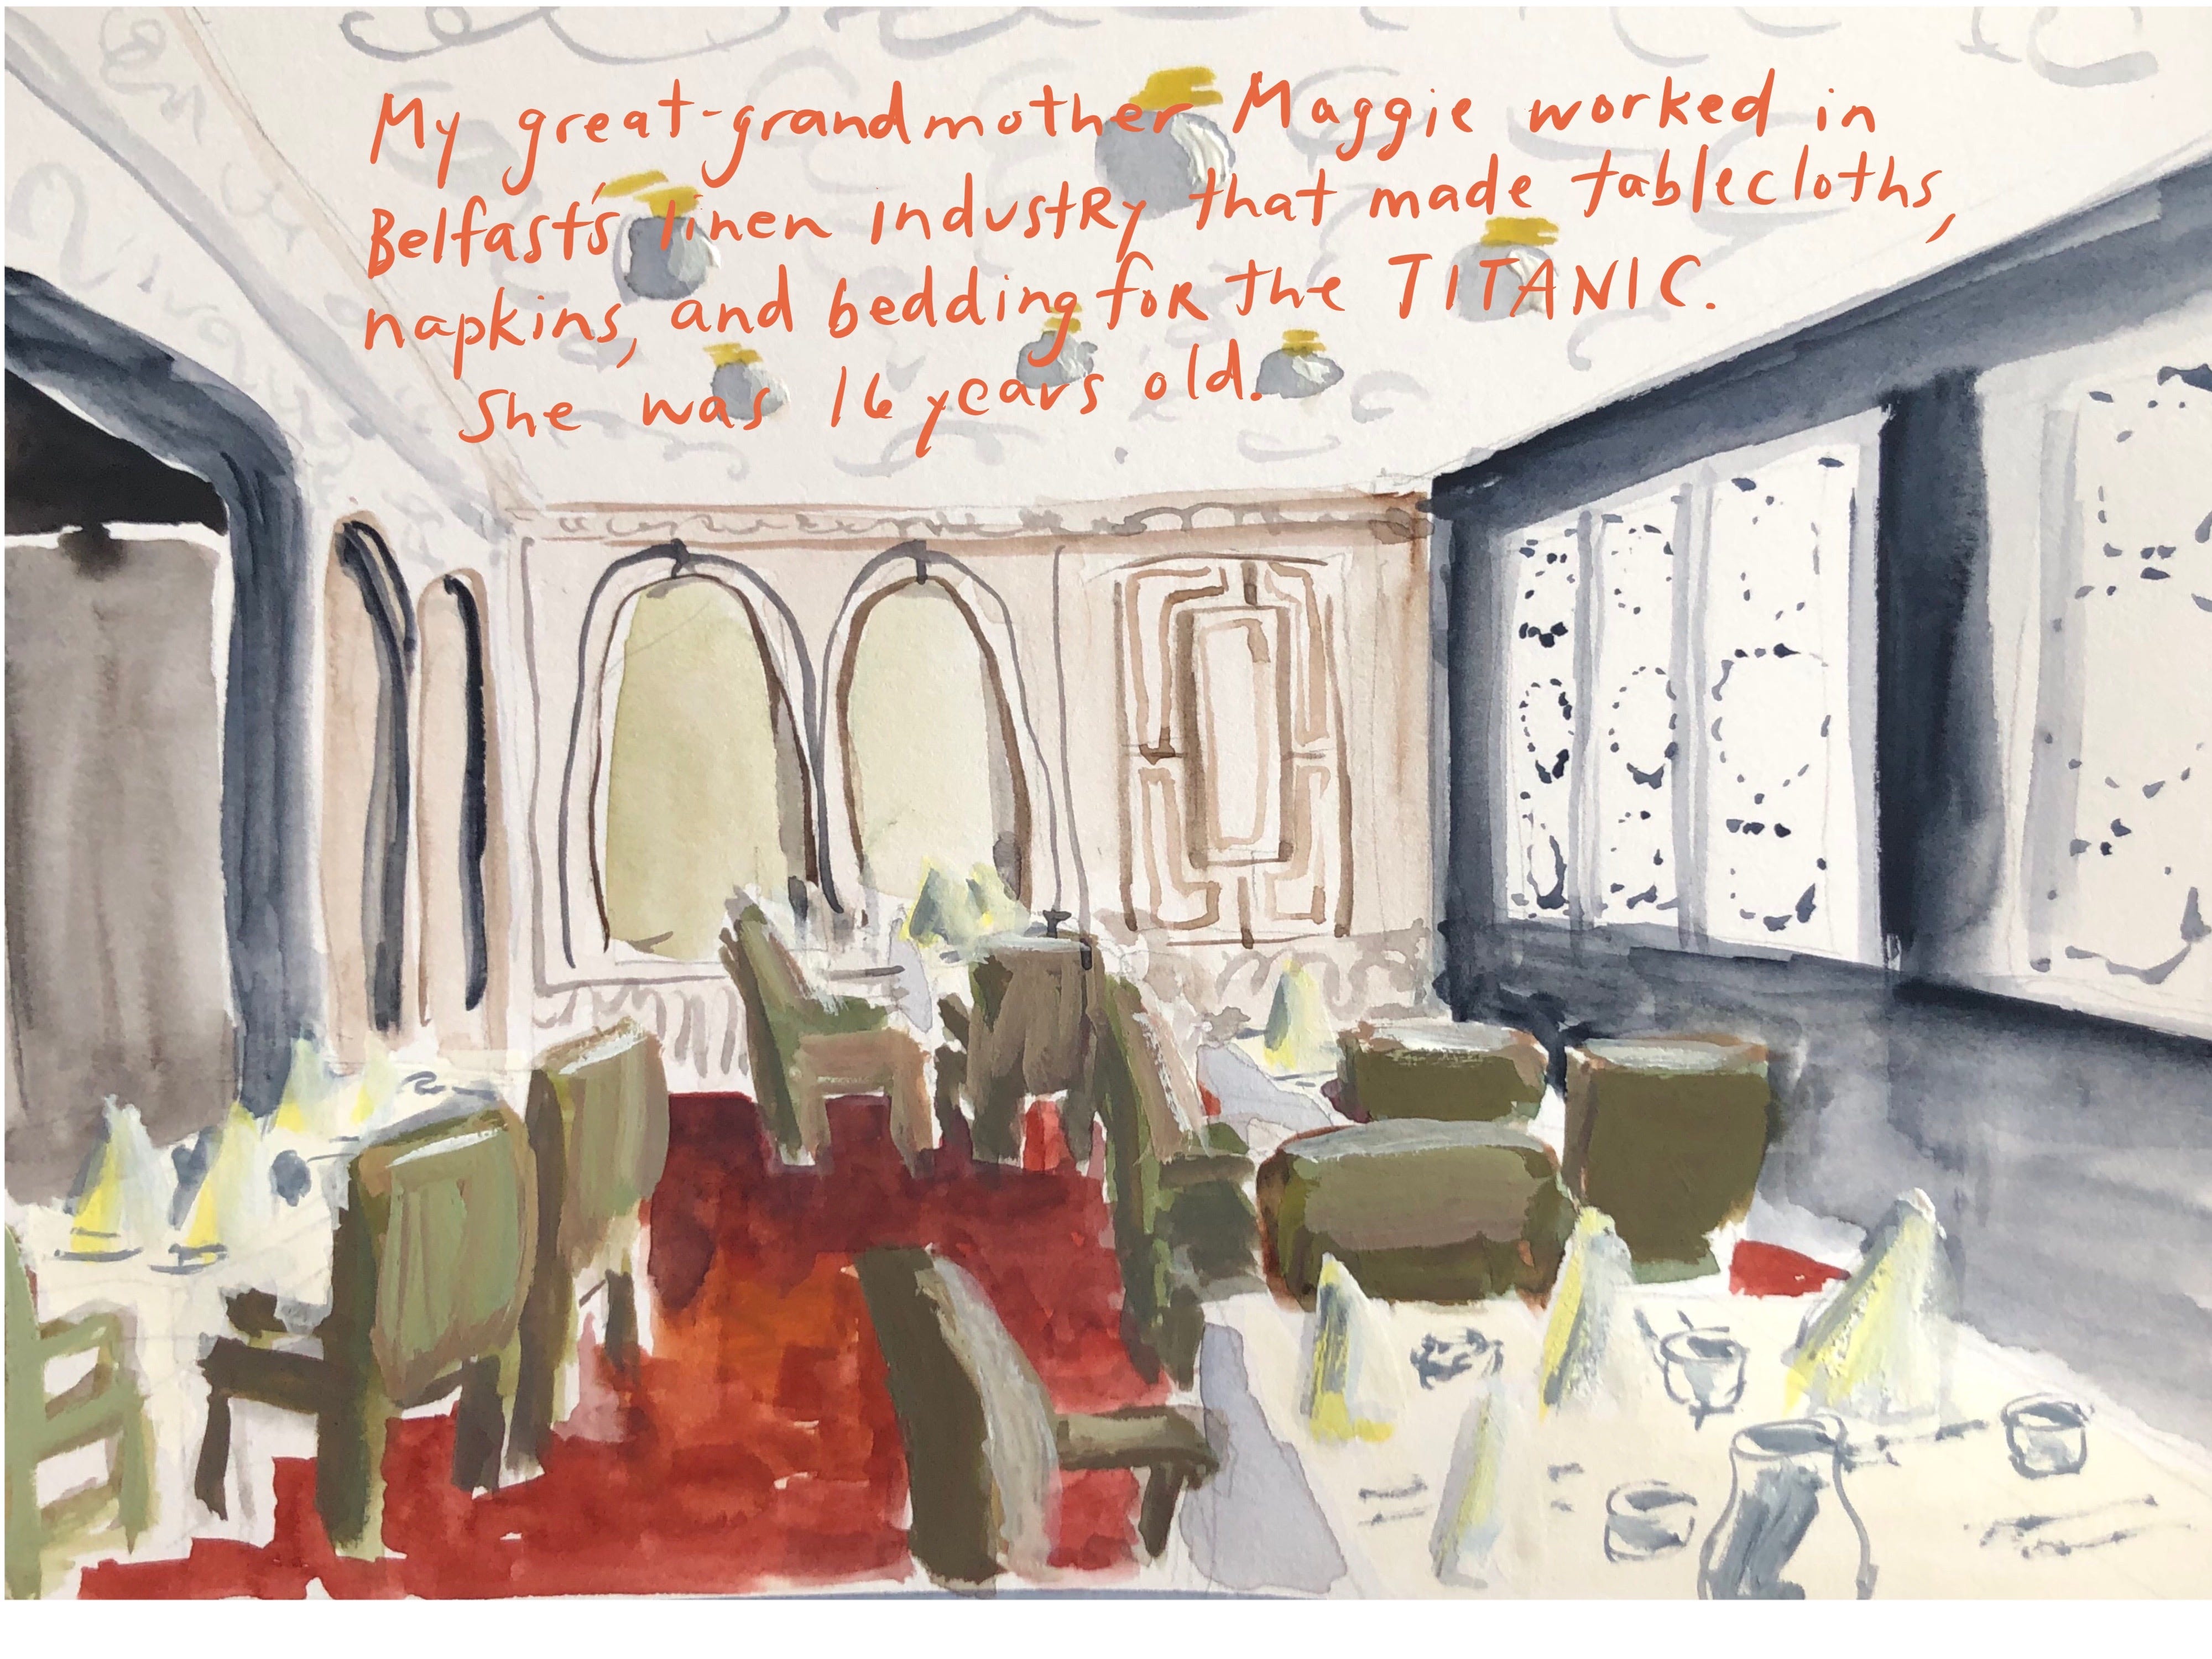 My great-grandmother Maggie worked in
Belfast's linen industry that made tablecloths,
napkins, and bedding for the TITANIC.
She was 16 years old.